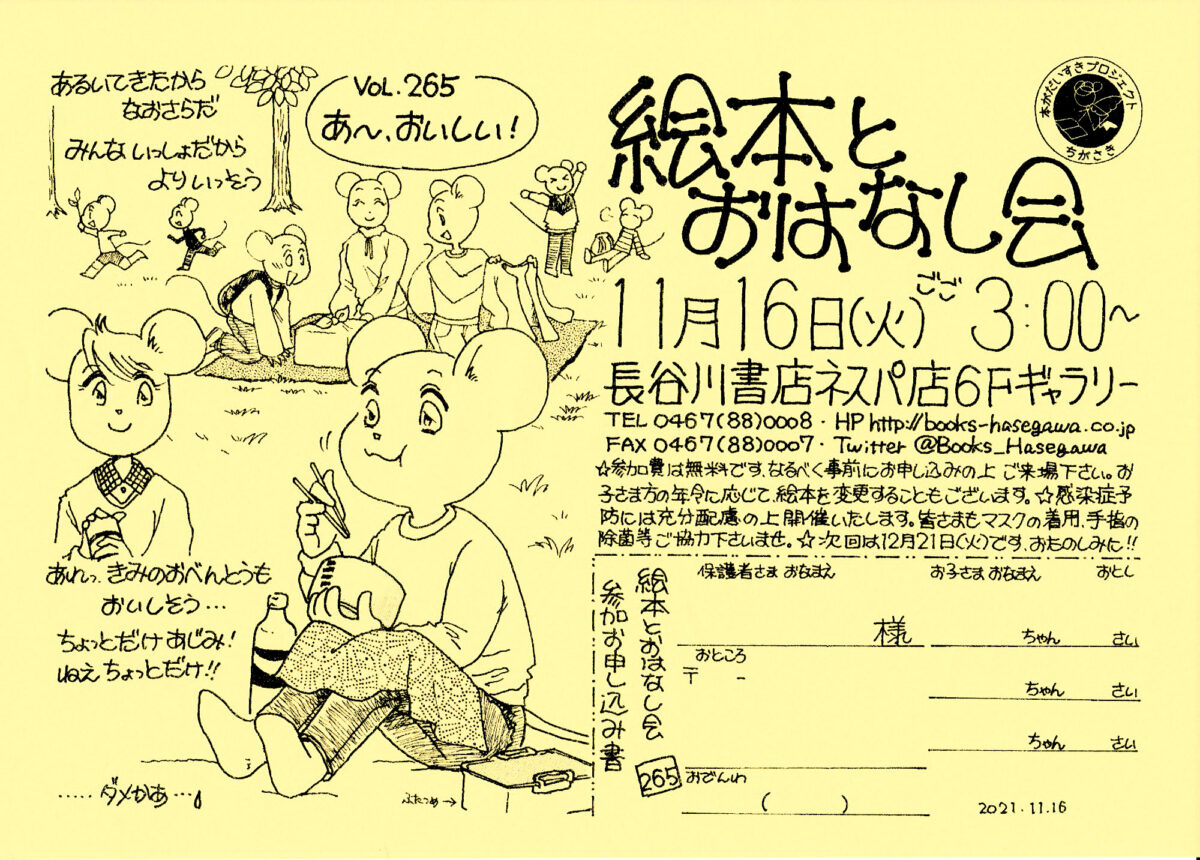 あるいてきたから
なおさらだ
みんないっしょだから
よりいっそう
VOL.265
あ〜、おいしい!
絵本と
おはなし会
本がだいすきプロジェクト
ちがさき
11月16日(火)ごご3:00〜
長谷川書店ネスパ店6Fギャラリー
TEL 0467(88)0008・HP http://books-hasegawa.co.jp
FAX 0467(88)0007・Twitter @Books_Hasegawa
☆参加費は無料です、なるべく事前にお申し込みの上 ご来場下さい。お
子さま方の年令に応じて、絵本を変更することもございます。☆感染症予
防には充分配慮の上開催いたします。皆さまもマスクの着用、手指の
除菌等ご協力下さいませ。☆次回は12月21日(火)です、おたのしみに!!
あれっ、きみのおべんとうも
おいしそう…
ちょっとだけあじみ!
ねえちょっとだけ!!
……ダメかあ…
ふたつめ→
絵本とおはなし会
参加お申し込み書
265
保護者さま おなまえ
お子さま おなまえ おとし
様
ちゃん さい
おところ
〒 -
ちゃん さい
ちゃん さい
おでんわ
( )
2021.11.16